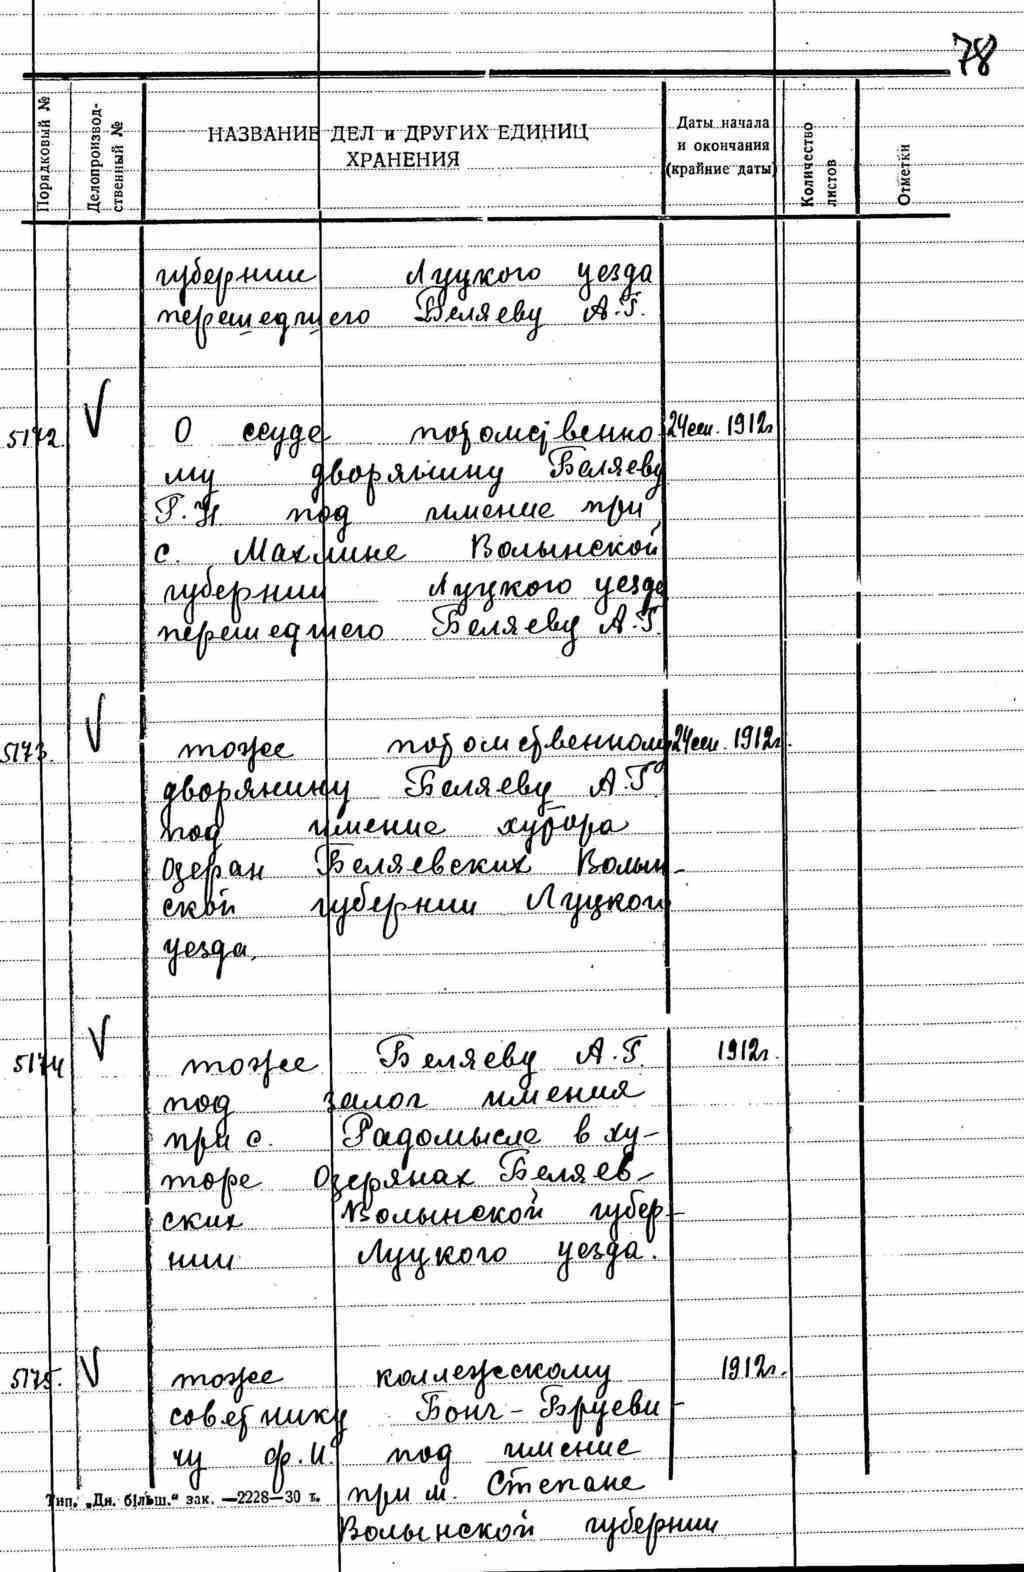 78
Порядковый №
Делопроизвод-
ственный №
НАЗВАНИЕ ДЕЛ и ДРУГИХ ЕДИНИЦ
ХРАНЕНИЯ
Даты начала
и окончания
(крайние даты)
Количество
листов
Отметки
губернии Луцкого уезда
перешедшего Беляеву А.Г.
5172. V О ссуде потомственно 24 сен. 1912г
му дворянину Беляеву
Г.Н под имение при
с. Махлине Волынской
губернии Луцкого уезда
перешедшего Беляеву А.Г.
5173. V тоже потомственному 24 сен. 1912г.
дворянину Беляеву А.Г.
под имение хутора
Озеран Беляевских Волын-
ской губернии Луцкой
уезда.
5174 V тоже Беляеву А.Г. 1912г.
под залог имения
при с. Радомысле в ху-
торе Озерянах Беляев-
ских Волынской губер-
нии Луцкого уезда.
5175. V тоже коллежскому 1912г.
советнику Бонч-Бруеви-
чу ф.И. под имение
при м. Степане
Волынской губернии
Тип. „Дн. більш." зак. —2228—30 т.